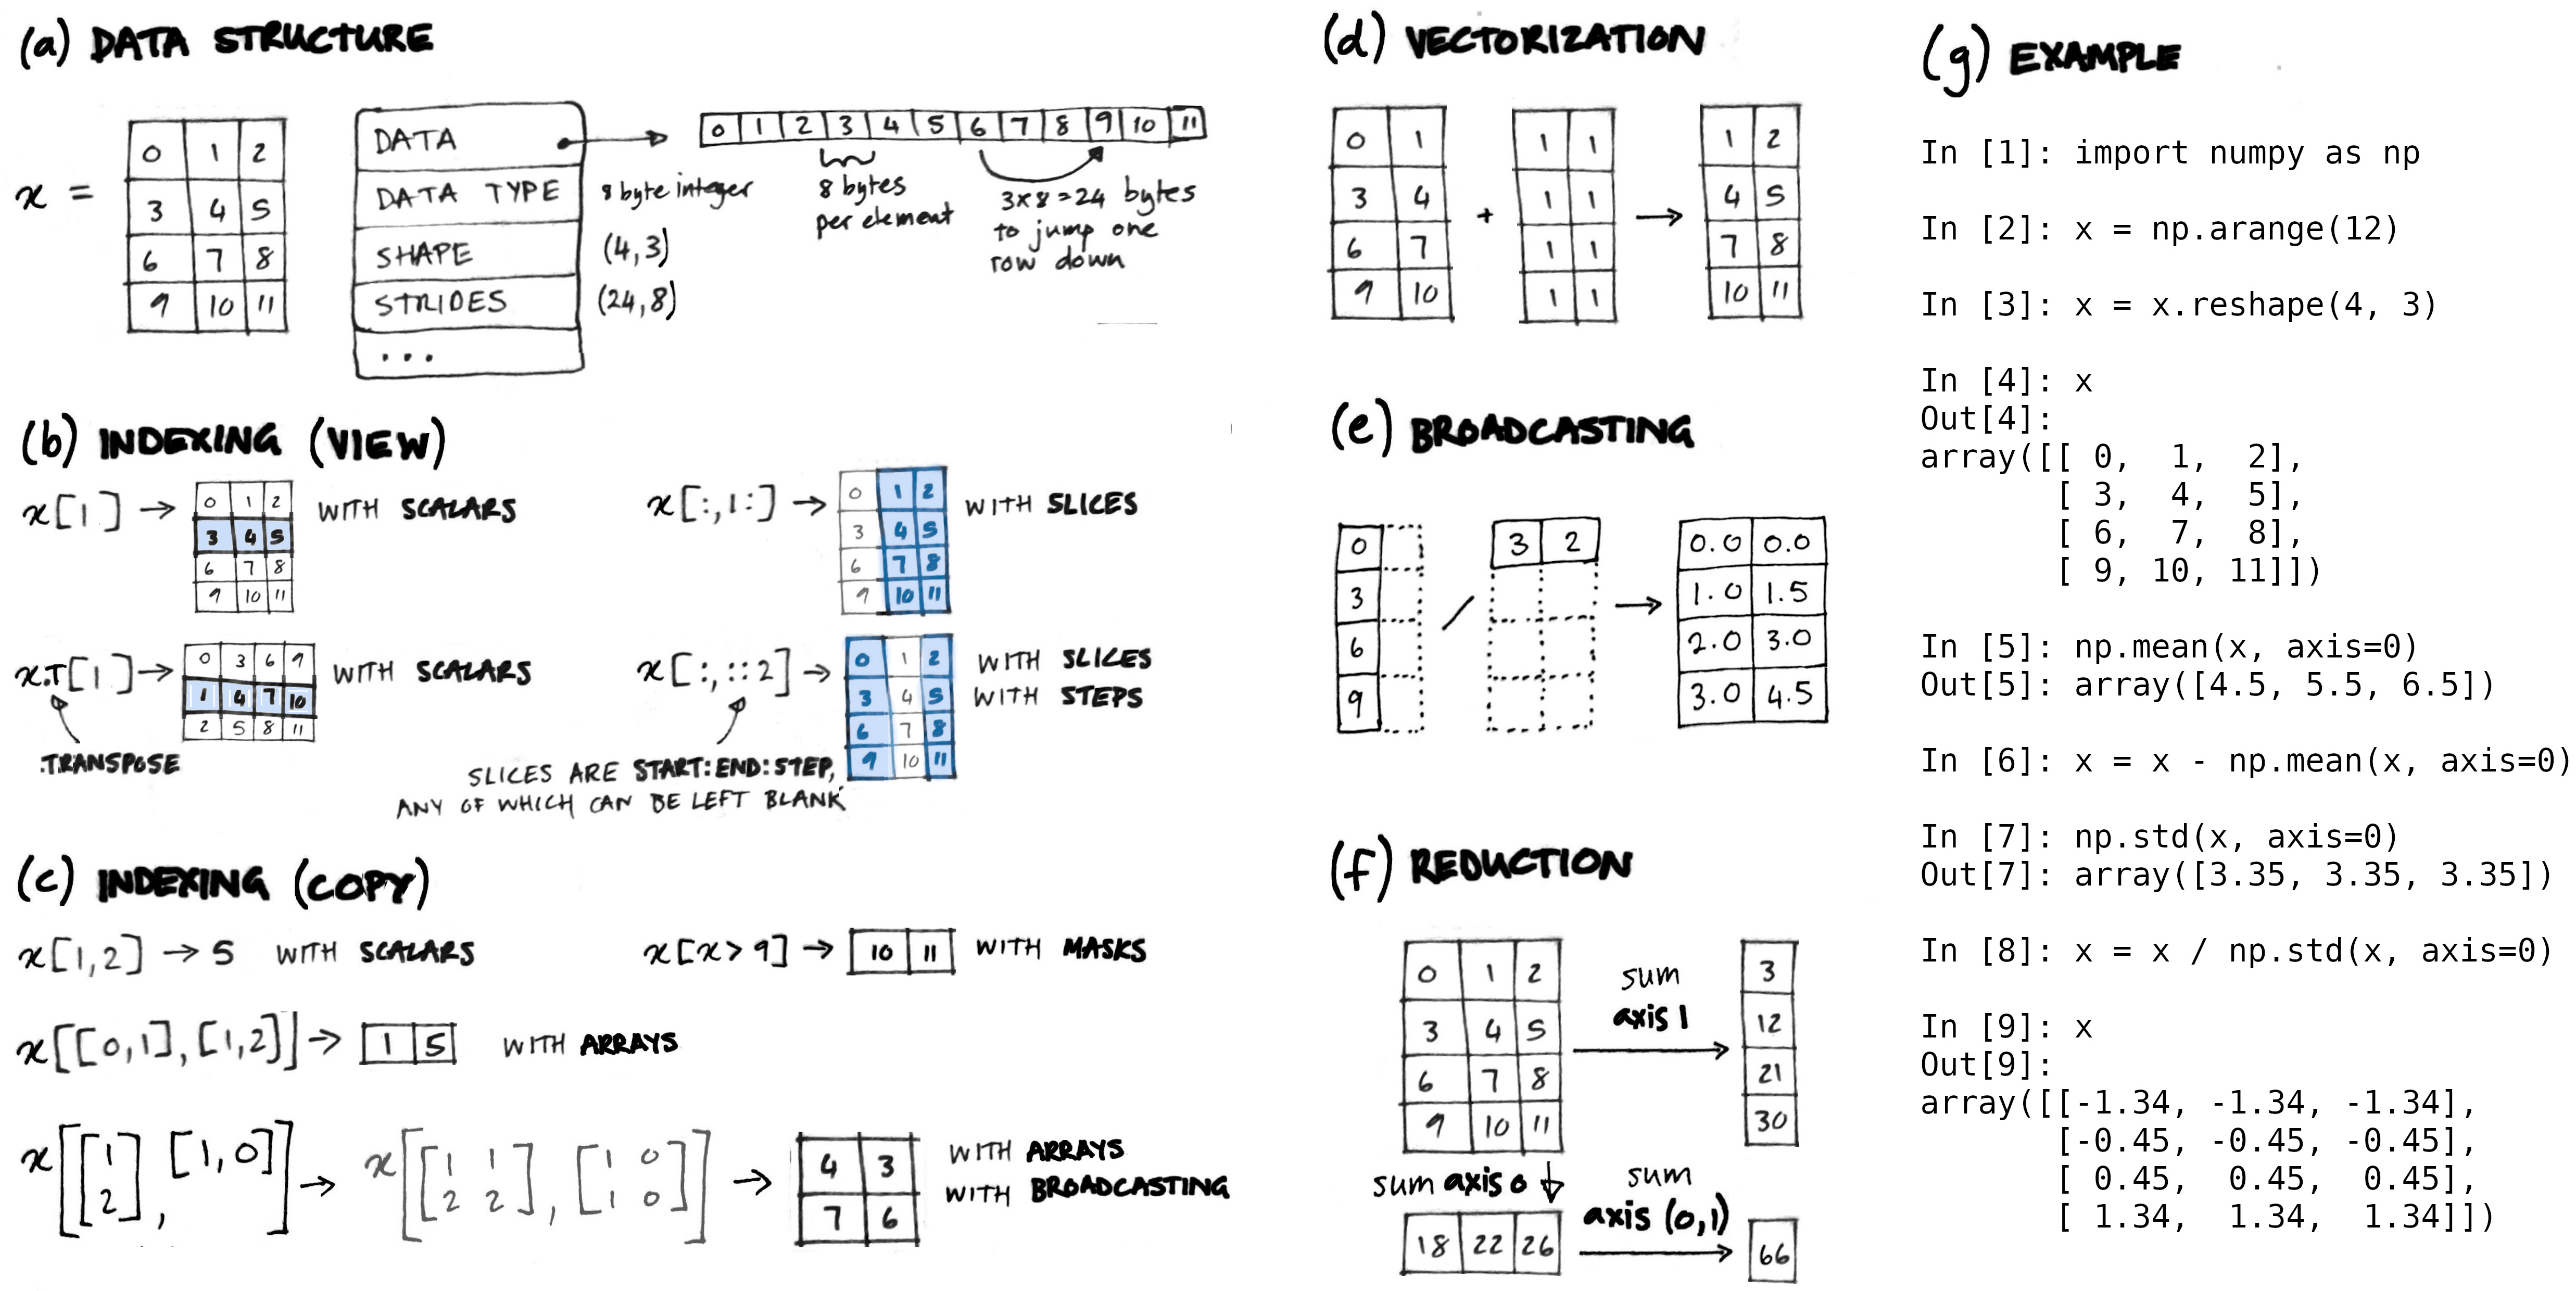 (a) DATA STRUCTURE
x =
0 1 2
3 4 5
6 7 8
9 10 11
DATA
DATA TYPE
SHAPE
STRIDES
...
8 byte integer
(4,3)
(24,8)
0 1 2 3 4 5 6 7 8 9 10 11
8 bytes
per element
3x8=24 bytes
to jump one
row down
(b) INDEXING (VIEW)
x[1] →
0 1 2
3 4 5
6 7 8
9 10 11
WITH SCALARS
x[:,1:] →
0 1 2
3 4 5
6 7 8
9 10 11
WITH SLICES
x.T[1] →
0 3 6 9
1 4 7 10
2 5 8 11
WITH SCALARS
TRANSPOSE
x[:,::2] →
0 1 2
3 4 5
6 7 8
9 10 11
WITH SLICES
WITH STEPS
SLICES ARE START:END:STEP,
ANY OF WHICH CAN BE LEFT BLANK
(c) INDEXING (COPY)
x[1,2] → 5 WITH SCALARS
x[x>9] → 10 11 WITH MASKS
x[[0,1],[1,2]] → 1 5 WITH ARRAYS
x[[1 2],[1,0]] → x[[1 1
2 2],[1 0
1 0]] →
4 3
7 6
WITH ARRAYS
WITH BROADCASTING
(d) VECTORIZATION
0 1
3 4
6 7
9 10
+
1 1
1 1
1 1
1 1
→
1 2
4 5
7 8
10 11
(e) BROADCASTING
0
3
6
9
/
3 2
→
0.0 0.0
1.0 1.5
2.0 3.0
3.0 4.5
(f) REDUCTION
0 1 2
3 4 5
6 7 8
9 10 11
sum
axis 1
3
12
21
30
sum axis 0 ↓
18 22 26
sum
axis (0,1)
66
(g) EXAMPLE
In [1]: import numpy as np
In [2]: x = np.arange(12)
In [3]: x = x.reshape(4, 3)
In [4]: x
Out[4]:
array([[ 0,  1,  2],
[ 3,  4,  5],
[ 6,  7,  8],
[ 9, 10, 11]])
In [5]: np.mean(x, axis=0)
Out[5]: array([4.5, 5.5, 6.5])
In [6]: x = x - np.mean(x, axis=0)
In [7]: np.std(x, axis=0)
Out[7]: array([3.35, 3.35, 3.35])
In [8]: x = x / np.std(x, axis=0)
In [9]: x
Out[9]:
array([[-1.34, -1.34, -1.34],
[-0.45, -0.45, -0.45],
[ 0.45,  0.45,  0.45],
[ 1.34,  1.34,  1.34]])